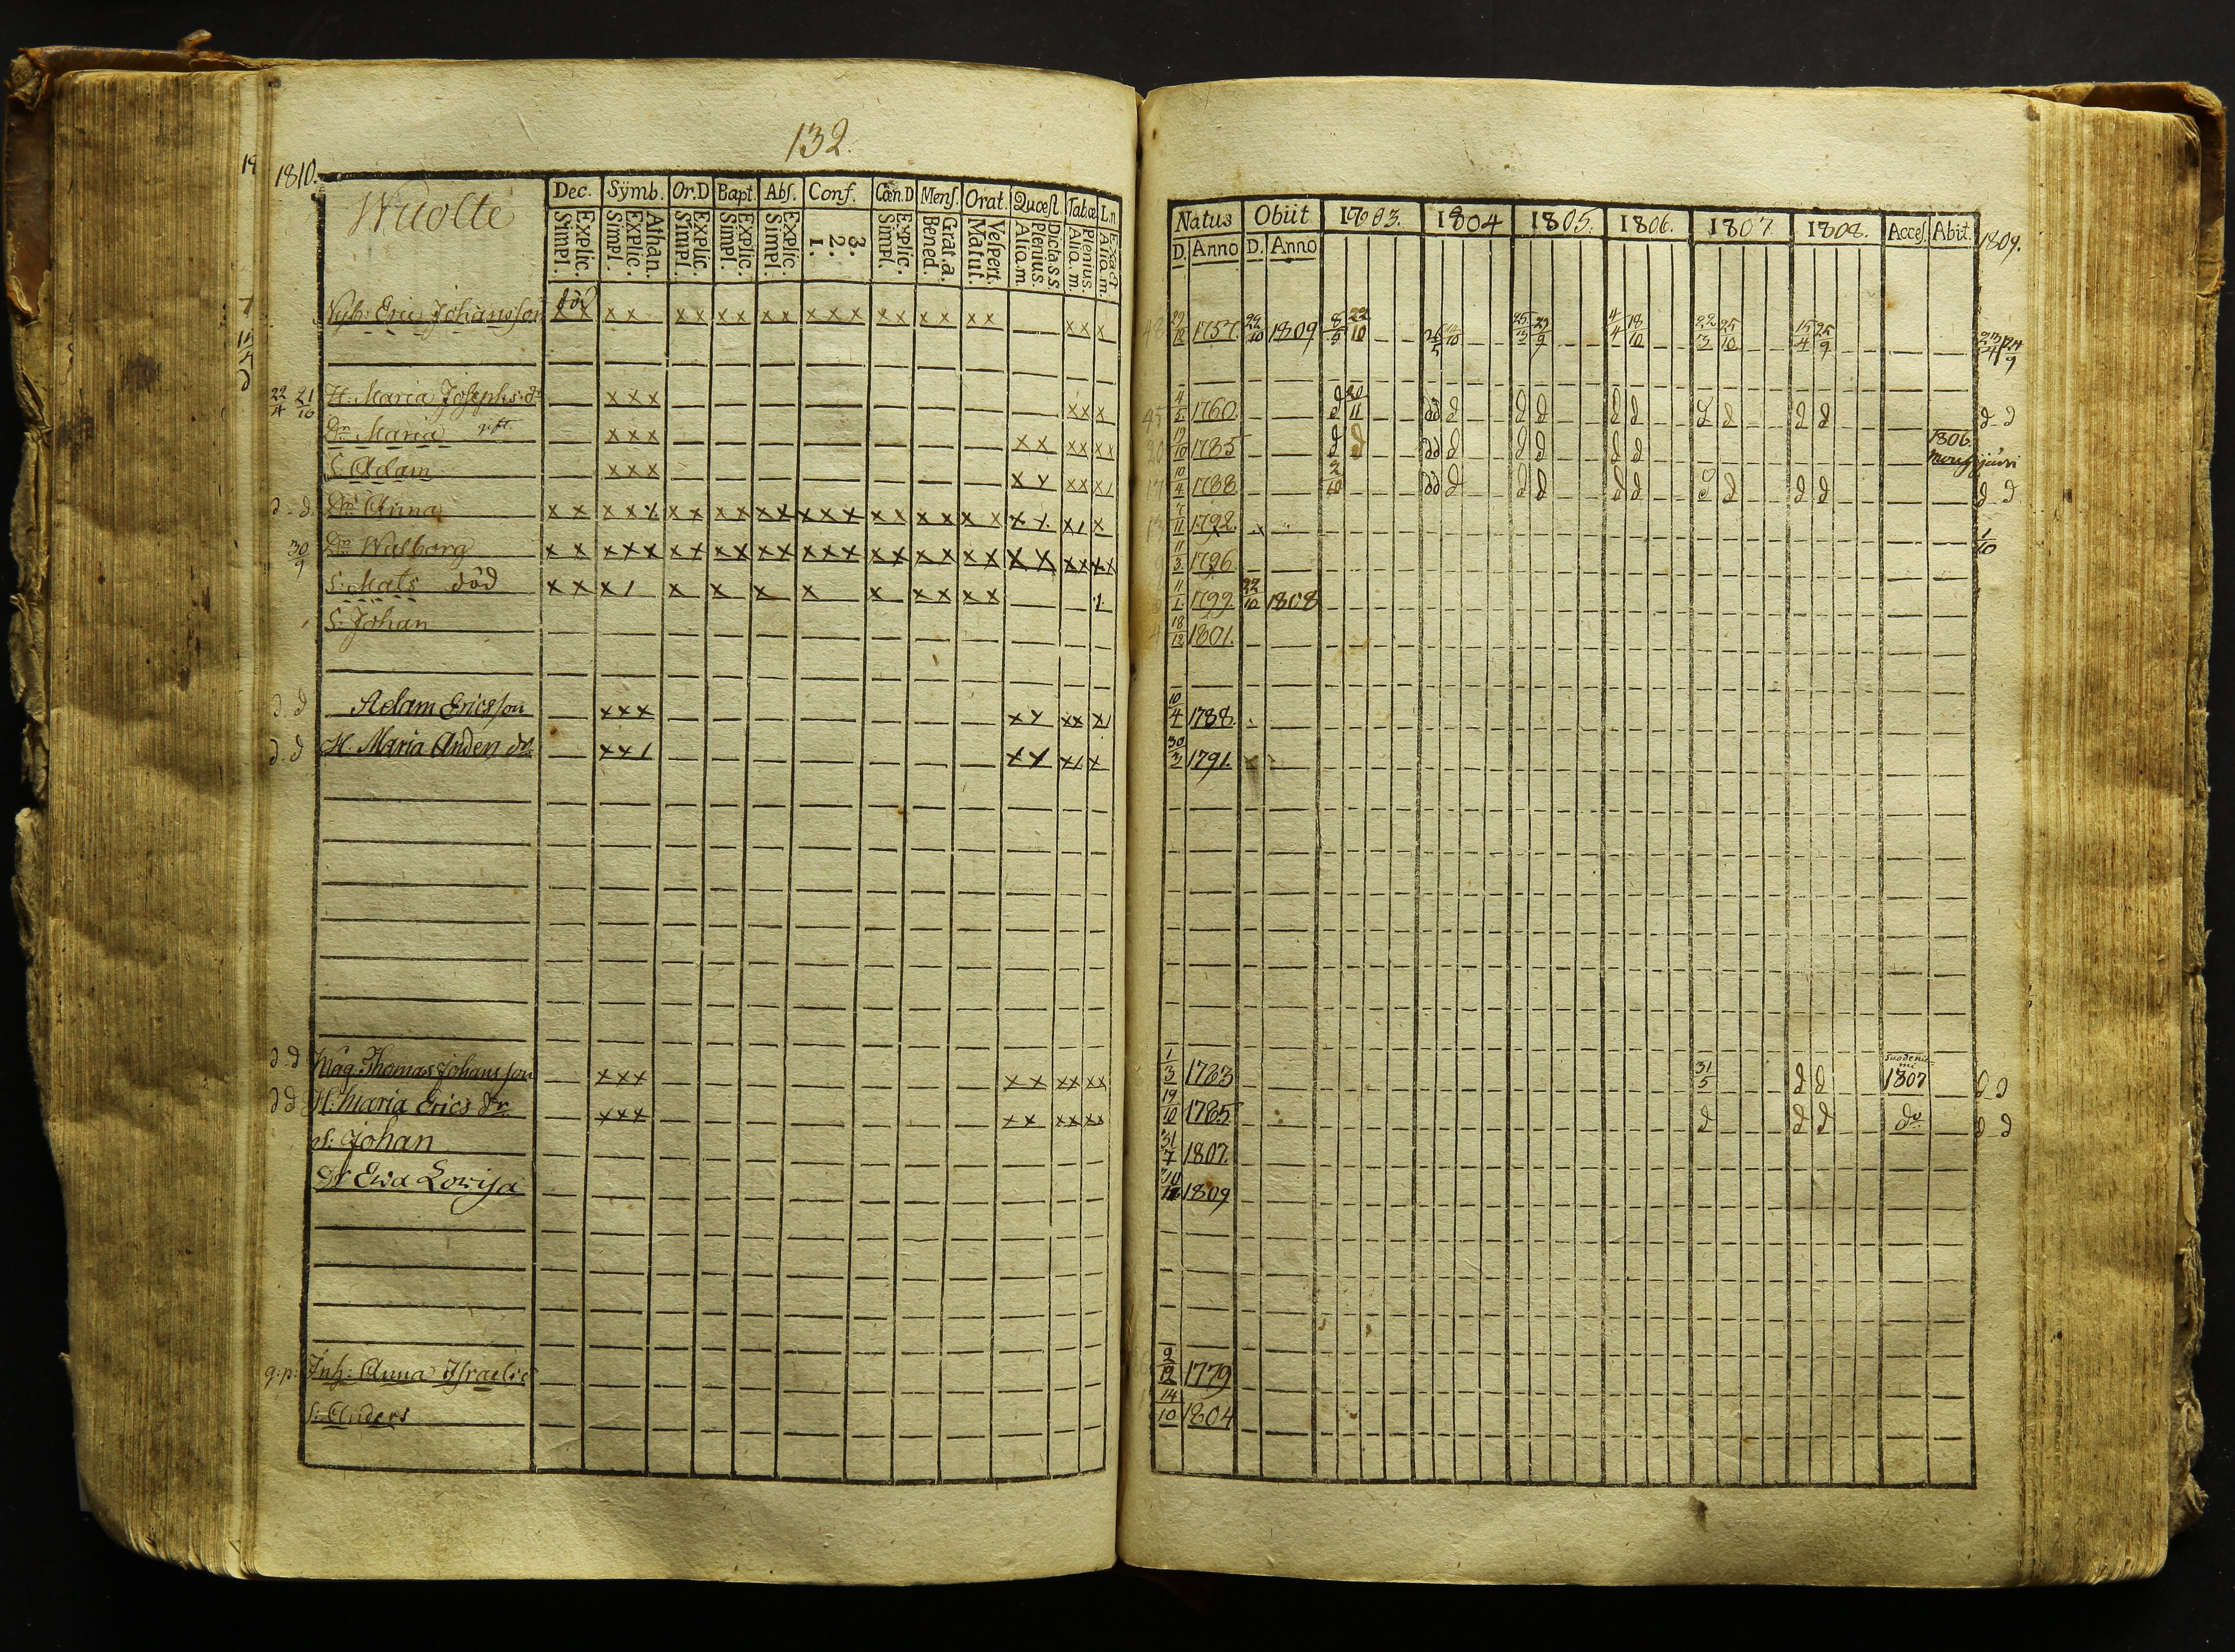 132.
1810.
Wuolte
Dec. Sÿmb. Or.D Bapt. Abſ. Conf. Cœn.D Menſ. Orat. Quœſt. Tabœ L.n.
Explic. Simpl. Athan. Explic. Simpl. Explic. Simpl. Explic. Simpl. Explic. Simpl. 3. 2. 1. Explic. Simpl. Grat.a. Bened. Veſpert. Matut. Dicta.s.s. Plenius. Aliq.m. Plenius. Aliq.m. Exact Aliq.m.
död
Nyb: Eric Johansson x x x x x x x x x x x x x x x x x x x x x x
22/4 21/10 H: Maria Josephs:dr x x x x x x
Dr Maria gift x x x x x x x x x
S: Adam x x x x x x x x /
d - d. Dr Anna x x x x / x x x x x x x x x x x x x x x x / x / x
30/9 Dr Walborg x x x x x x x x x x x x x x x x x x x x x x x x x x
S: Mats död x x x / x x x x x x x x x 1.
S: Johan
d. d Adam Ericsson x x x x x x x x /
d. d H. Maria Anders dr x x / x x x / x
d. d Måg. Thomas Johansson x x x x x x x x x
d d H: Maria Erics dr x x x x x x x x x
S: Johan
Dr Ewa Lovisa
q: p: Inh: Anna Israels:d
S: Anders
Natus Obiit 1803. 1804 1805. 1806. 1807 1808. Acceſ. Abit. 1809.
D. Anno D. Anno
1757. 22/10 1809 8/5 22/10 4/4 18/10 22/3 25/10 15/4 25/9 23/4 24/9
1760. d 20/11 dd d d d d d d d d d d d
19/10 1785 d d dd d d d d d 1806.
10/4 1788. 2/10 dd d d d d d d d d d d d
7/11 1792. 1/10
11/3 1796.
11/1 1799. 22/10 1808
18/12 1801.
10/4 1788.
30/3 1791.
1/3 1783 31/5 d d 1807 d d
19/10 1785 d d d do d d
31/7 1807.
1809
9/12 1779
14/10 1804